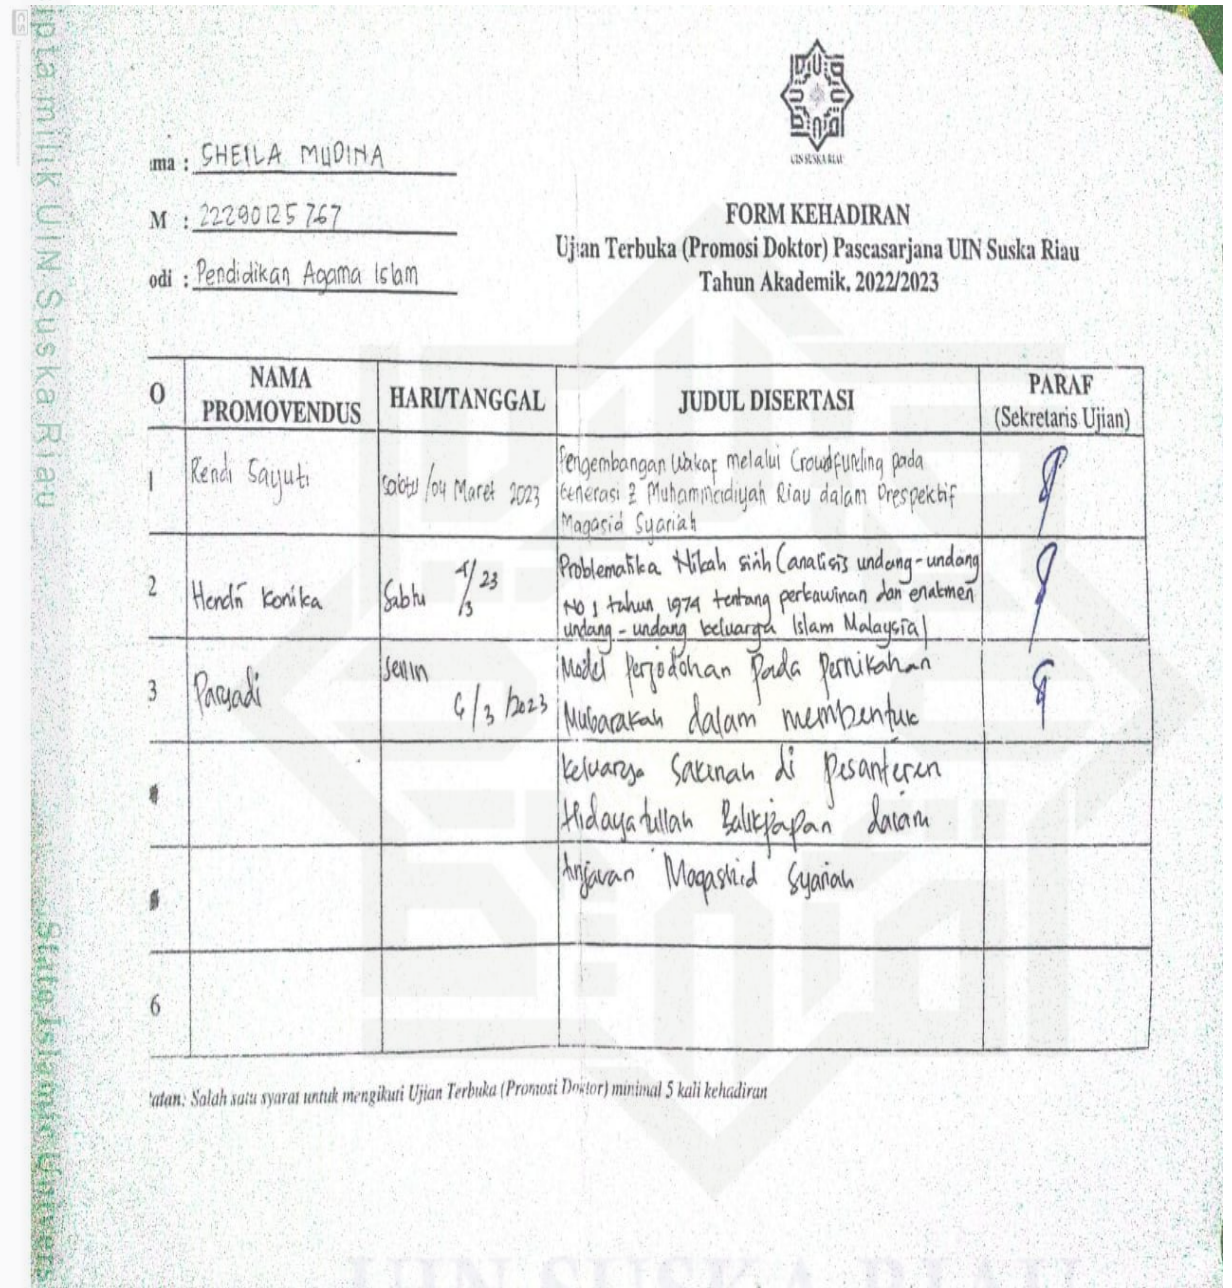 ipta milik UIN Suska Riau
State Islamic Univers
UIN SUSKA RIAU
ma : SHEILA MUDINA
M : 22290125767
odi : Pendidikan Agama Islam
FORM KEHADIRAN
Ujian Terbuka (Promosi Doktor) Pascasarjana UIN Suska Riau
Tahun Akademik. 2022/2023
O
NAMA PROMOVENDUS
HARI/TANGGAL
JUDUL DISERTASI
PARAF
(Sekretaris Ujian)
1
Rendi Sayuti
Sabtu /04 Maret 2023
Pengembangan Wakaf melalui Crowdfunding pada
Generasi Z Muhammadiyah Riau dalam Prespektif
Maqasid Syariah
2
Hendri Konika
Sabtu 4/3 23
Problematika Nikah sirih (analisis undang-undang
No 1 tahun 1974 tentang perkawinan dan enakmen
undang-undang keluarga Islam Malaysia)
3
Paryadi
Senin
6/3/2023
Model Perjodohan Pada Pernikahan
Mubarakah dalam membentuk
keluarga Sakinah di Pesanteren
Hidayatullah Balikpapan dalam
tinjauan Maqashid Syariah
6
atan: Salah satu syarat untuk mengikuti Ujian Terbuka (Promosi Doktor) minimal 5 kali kehadiran
UIN SUSKA RIAU